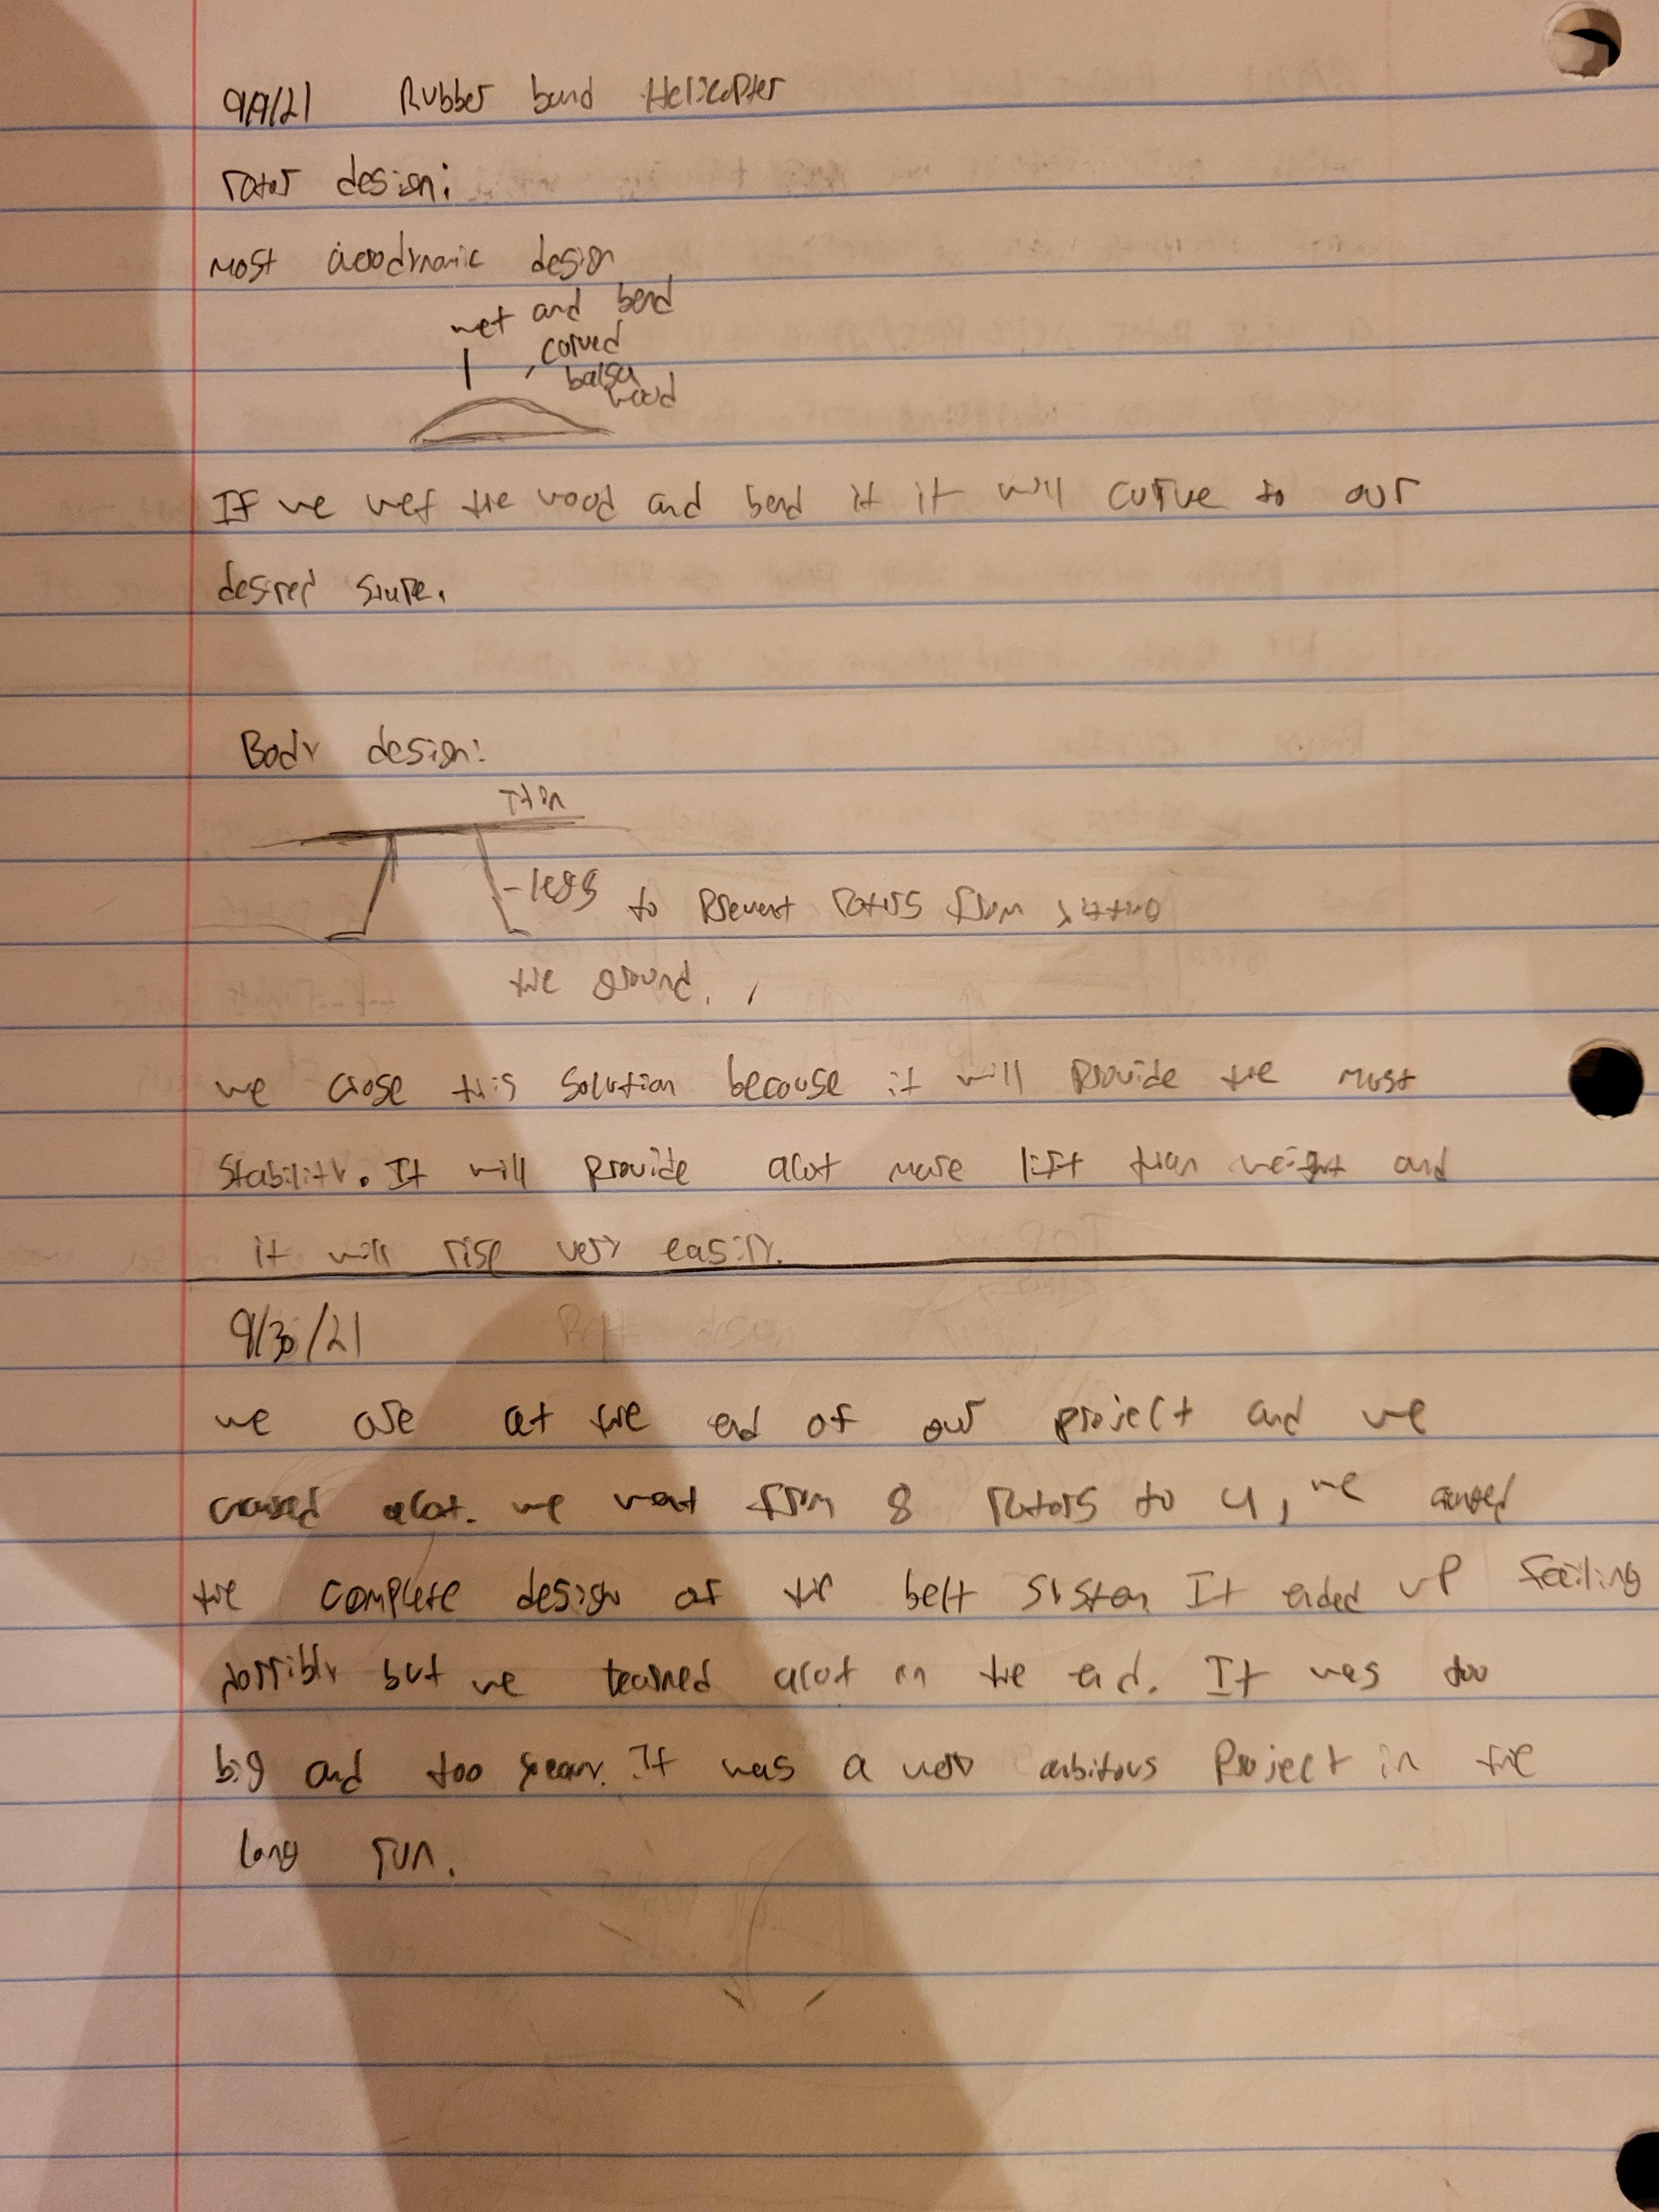 9/9/21 Rubber band Helicopter
rotor design:
most aerodynamic design
wet and bend
curved
balsa
wood
If we wet the wood and bend it it will curve to our
desired shape.
Body design:
thin
- legs to prevent rotors from hitting
the ground.
we chose this solution because it will provide the most
stability. It will provide alot more lift than weight and
it will rise very easily.
9/30/21
we are at the end of our project and we
changed alot. we went from 8 rotors to 4, we changed
the complete design of the belt system It ended up failing
horribly but we learned alot in the end. It was too
big and too heavy. It was a very ambitous project in the
long run.